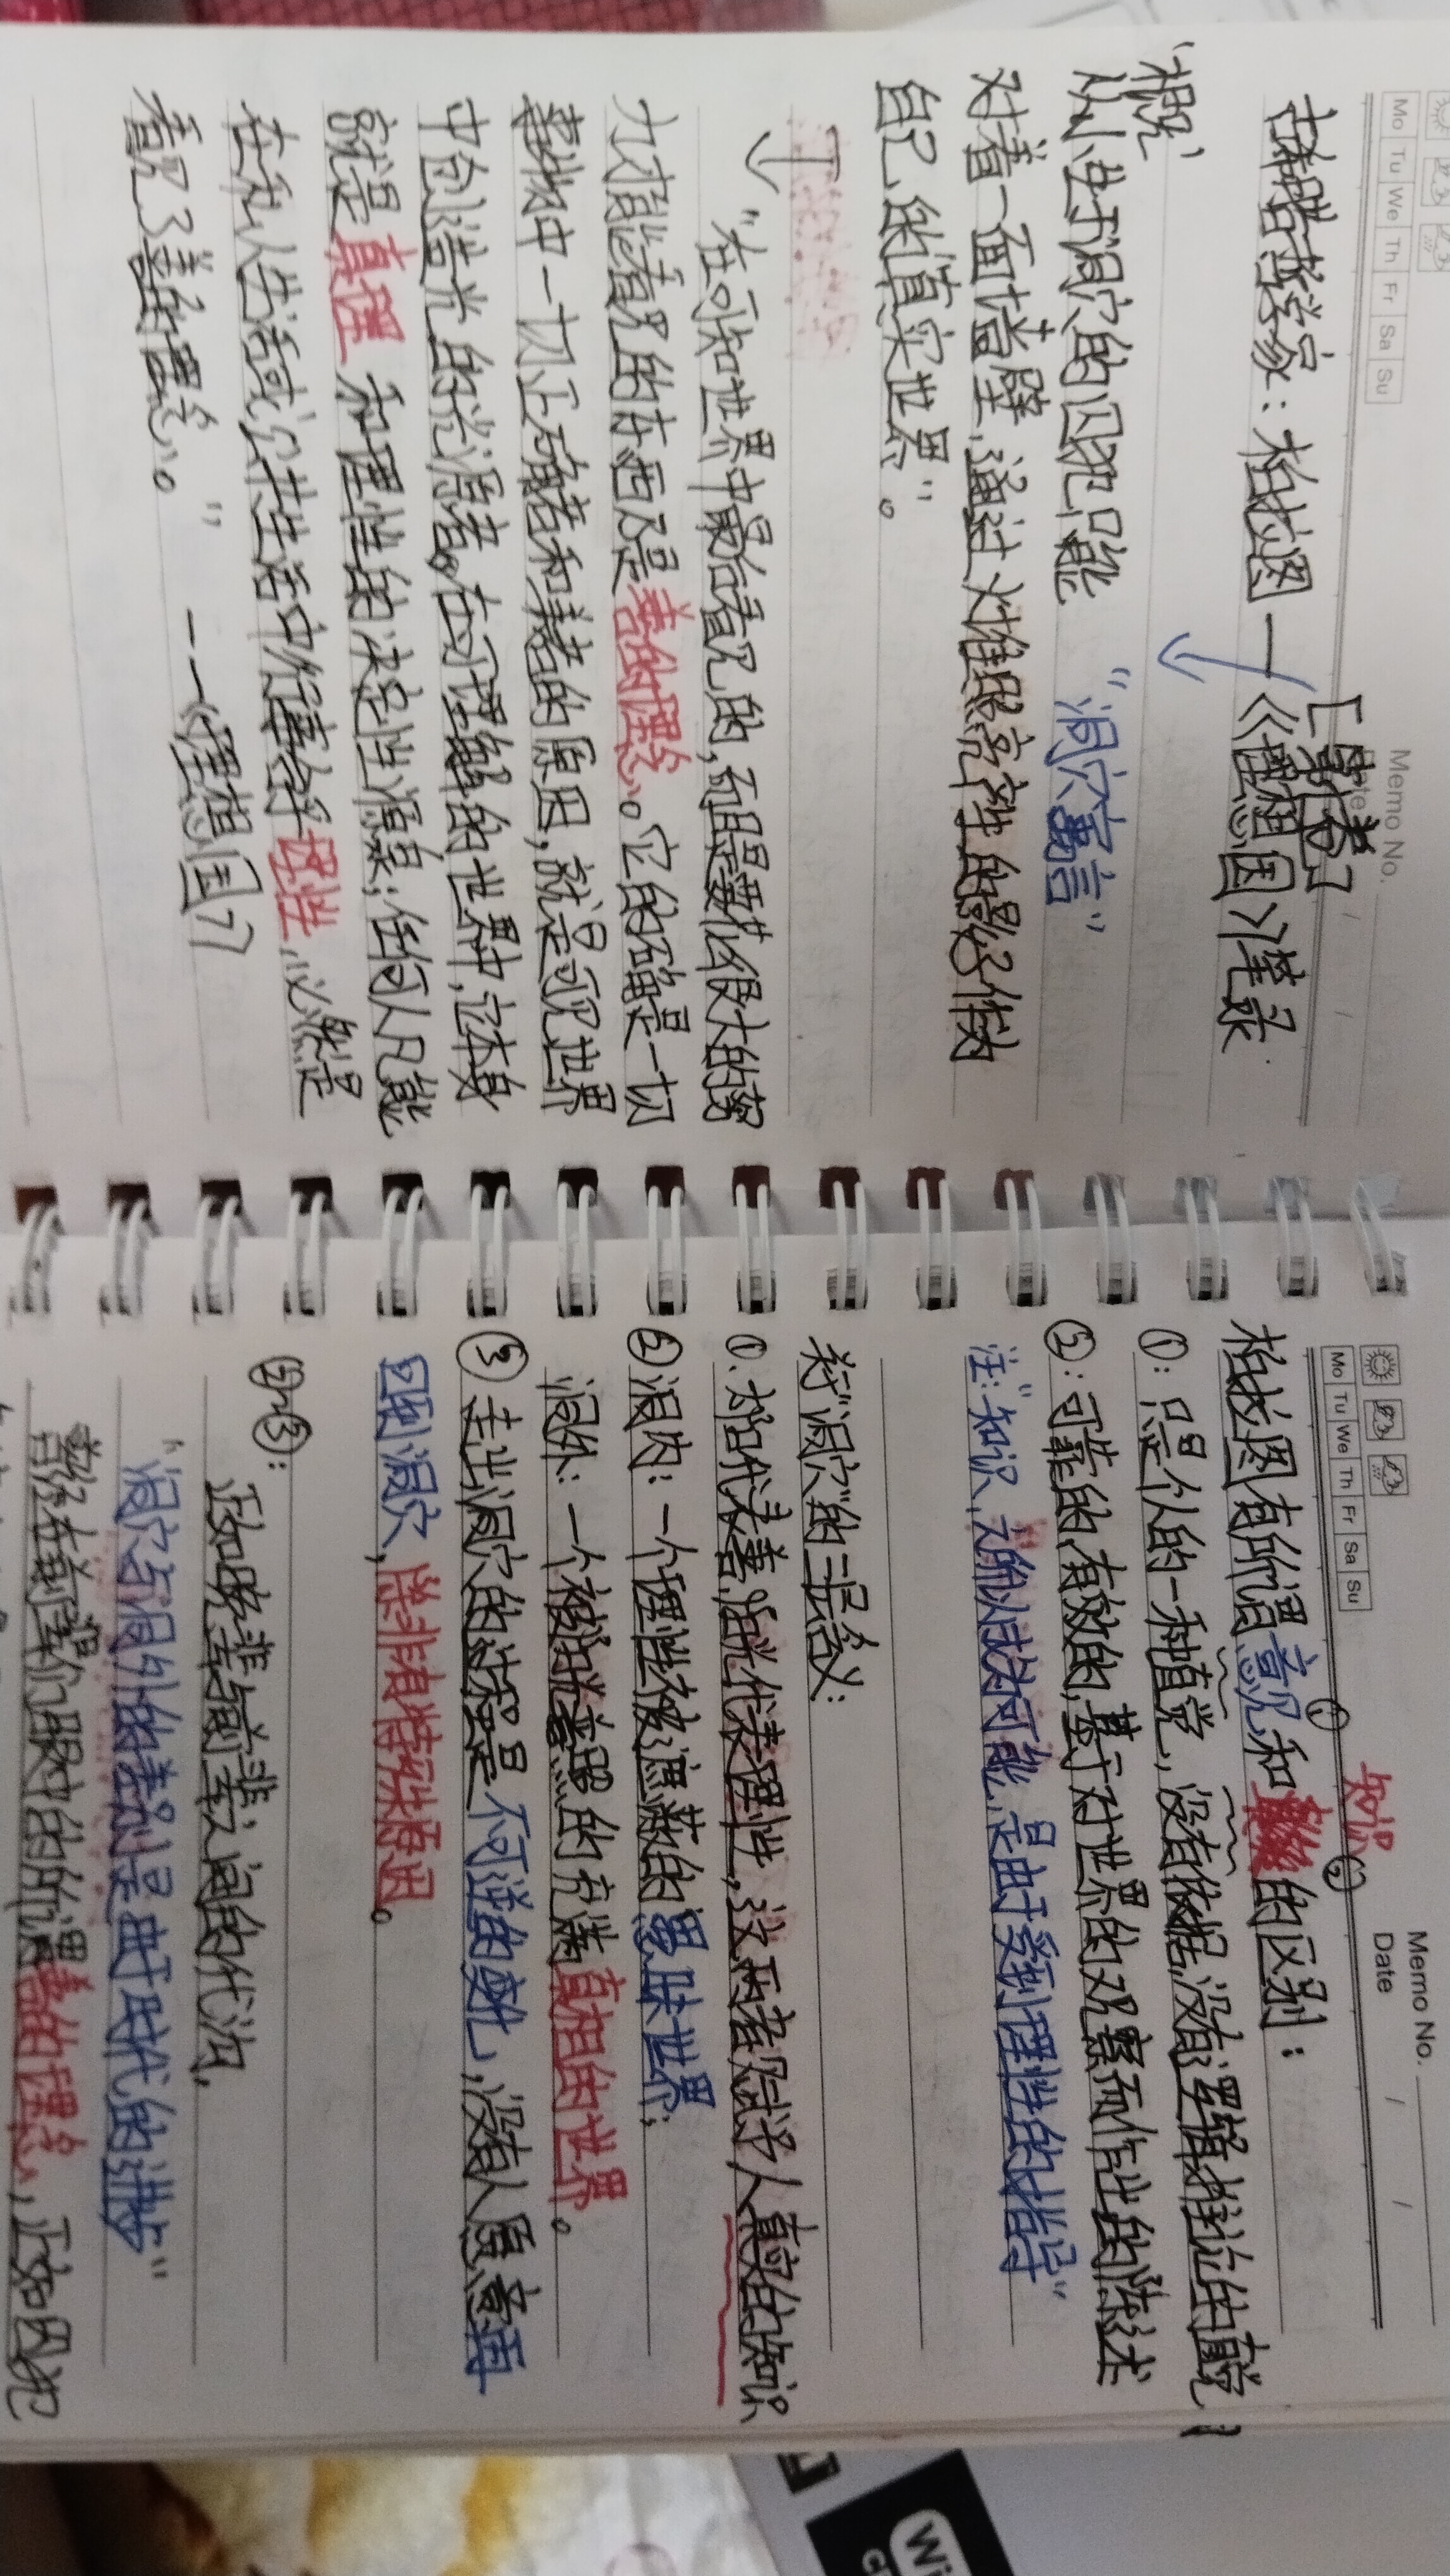 Mo Tu We Th Fr Sa Su
Memo No.
Date / /
[第七卷]
古希腊哲学家：柏拉图 —《理想国》笔录
"洞穴寓言"
"根
从小生于洞穴的囚犯只能
对着一面墙壁,通过火堆照亮产生的影子作为
自己'的真实世界"。
"在可知世界中最后看见的,而且是要花很大的努
力才能看见的东西乃是善的理念。它的确是一切
事物中一切正确者和美者的原因,就是可见世界
中创造光的光源者。在可理解的世界中,它本身
就是真理 和理性的决定性源泉;任何人凡能
在私人生活或公共生活中行事合乎理性,必然是
看见了善的理念。"
——《理想国》7
Mo Tu We Th Fr Sa Su
Memo No.
Date / /
知识
柏拉图有所谓意见①和②的区别：
①：只是人的一种直觉，没有依据,没有逻辑推论的直觉
②：可靠的,有效的,基于对世界的观察而作出的陈述
注:"知识,之所以成为可能,是由于受到理性的指导"
关于"洞穴"的三层含义:
①.太阳代表善,阳光代表理性,这两者赋予人真实的知识
②洞内：一个理性被遮蔽的愚昧世界;
洞外：一个被阳光普照的充满真相的世界。
③走出洞穴的过程是不可逆的劲儿,没有人愿意再
回到洞穴,除非有特殊原因。
如③:
正如晚辈与前辈之间的代沟,
"洞穴与洞外的差别是由于时代的进步"
曾经在前辈们眼中的所谓善的理念,正如囚犯